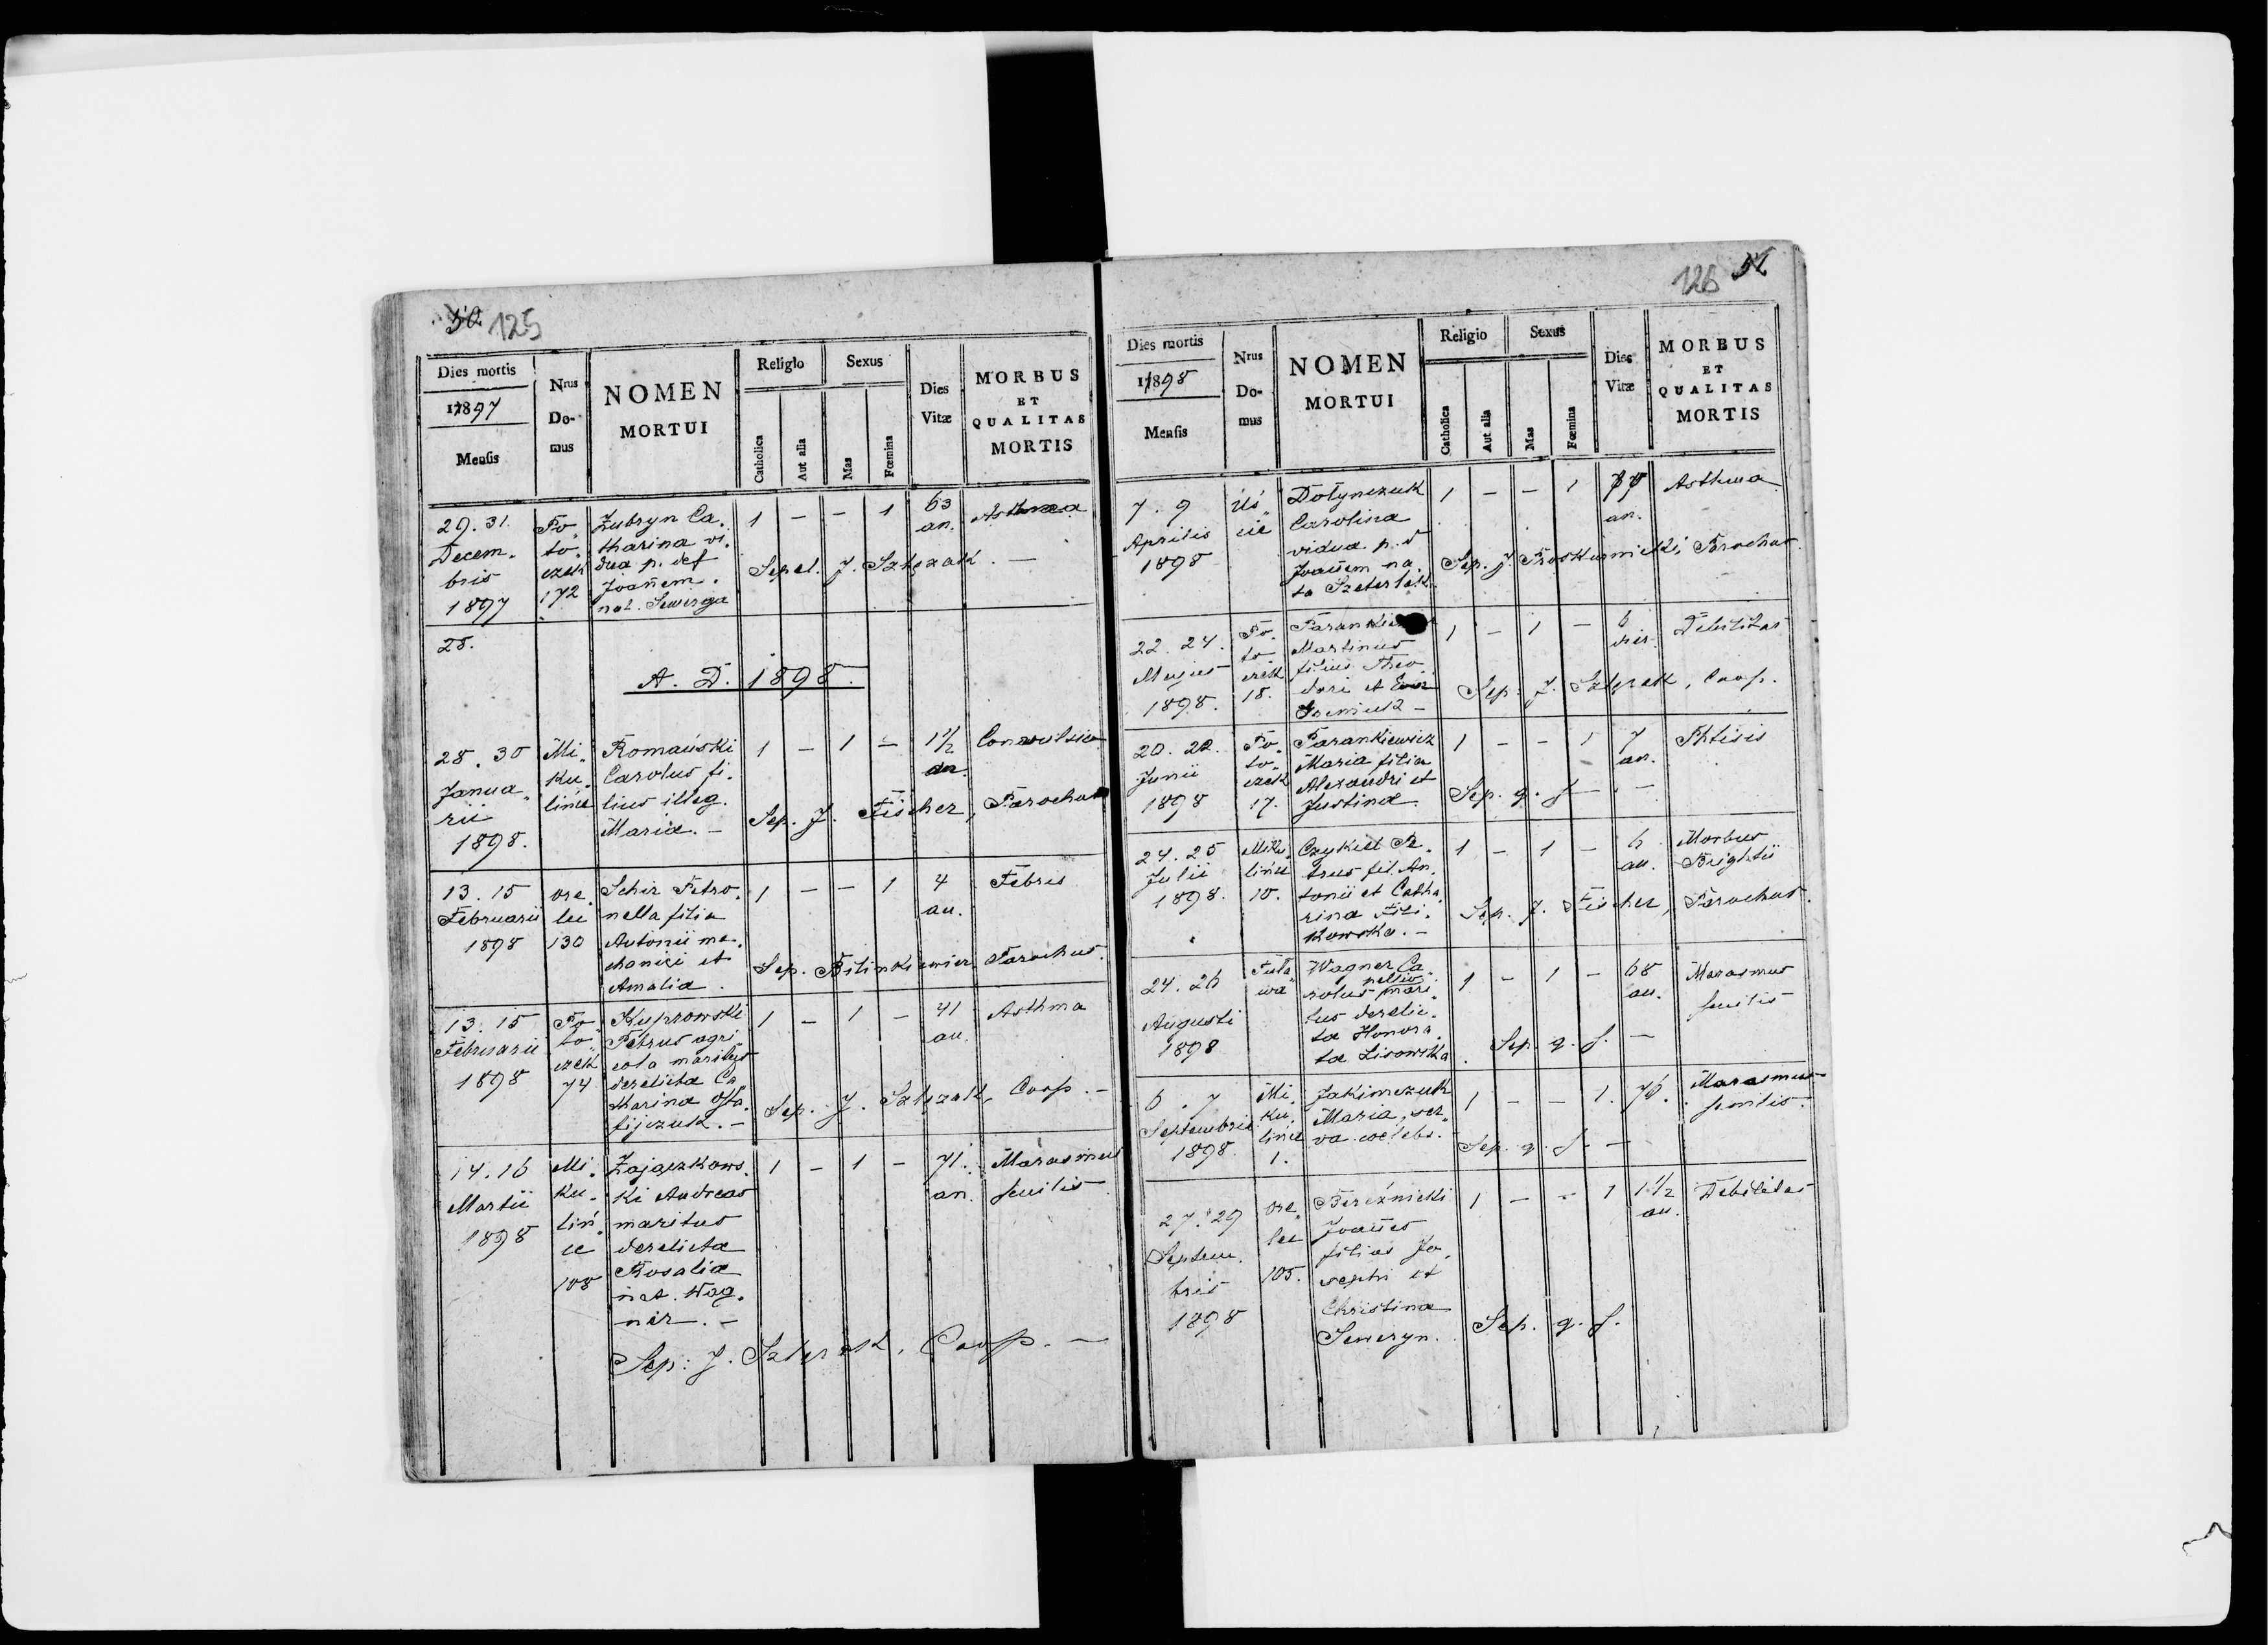 50. 125
Dies mortis
1897
Mensis
Nrus Do-mus
NOMEN MORTUI
Religio
Catholica
Aut alia
Sexus
Mas
Fœmina
Dies Vitæ
MORBUS ET QUALITAS MORTIS
29. 31. Decem. bris 1897
Po. to. czek 172
Zubryn Ca.
tharina vi.
dua p. def
Joañem.
nat. Sewerga
1 – – 1 63 an. Asthma
Sepel. J. Sztezak. –
28.
A. D. 1898.
28. 30 Janua. rii 1898.
Mi. ku. lińce
Romański
Carolus fi.
lius illeg.
Maria. –
1 – 1 – 1½ an. Convulsio
Sep. J. Fischer, Parochus
13. 15 Februarii 1898
ore. lec 130
Schir Petro.
nella filia
Antonii me.
chanici et
Amalia.
1 – – 1 4 an. Febris
Sep. Bilinkiewicz Parochus.
13. 15 Februarii 1898
Po. to. czek 74
Kuprowski
Petrus agri.
cola maritus
derelicta Ca.
tharina Osta.
fijczuk. –
1 – 1 – 41 an. Asthma
Sep. J. Sztezak, Coop. –
14. 16 Martii 1898
Mi. ku. liń. ce 108
Zajączkows.
ki Andreas
maritus
derelicta
Rosalia
nat. Wag.
ner. –
1 – 1 – 71. an. Marasmus senilis
Sep: J. Sztezak, Coop. –
126 51.
Dies mortis
1898
Mensis
Nrus Do-mus
NOMEN MORTUI
Religio
Catholica
Aut alia
Sexus
Mas
Fœmina
Dies Vitæ
MORBUS ET QUALITAS MORTIS
7. 9 Aprilis 1898
Uś. cie
Dołynczuk
Carolina
vidua p. d
Joañem na.
ta Szeterlak
1 – – 1 77 an. Asthma
Sep. J. Proskurnicki Parochus.
22. 24. Majus 1898.
Po. to. czek 18.
Martinus
filius Theo.
dori et Eva
1 – 1 – Debilitas
Sep. J. Sztezak, Coop.
20. 22. Junii 1898
Po. to. czek 17.
Parankiewicz
Maria filia
Alexandri et
Justina
1 – – 1 7 an. Phtisis
Sep. q. s. –
24. 25 Julii 1898.
Miku. lińce 10.
Pe.
trus fil. An.
tonii et Catha.
rina Fili.
kowska. –
1 – 1 – 6 an. Morbus Brightii
Sep. J. Fischer, Parochus.
24. 26 Augusti 1898
Tuła. wa
Wagner Ca.
rolus mari.
tus derelic.
ta Honora.
ta Lisowska.
1 – 1 – 68 an. Marasmus senilis
Sep. q. s. –
6. 7 Septembris 1898.
Mi. ku. lińce 1.
Jakimczuk
Maria, ser.
va caelebs.
1 – – 1. 76. Marasmus senilis.
Sep. q. s. –
27. 29 Septem. bris 1898
ore. lec 105.
Bereźnicki
Joañes
filius Jo.
sephi et
Christina
Seweryn.
1 – – 1 1½ an. Debilitas
Sep. q. s.